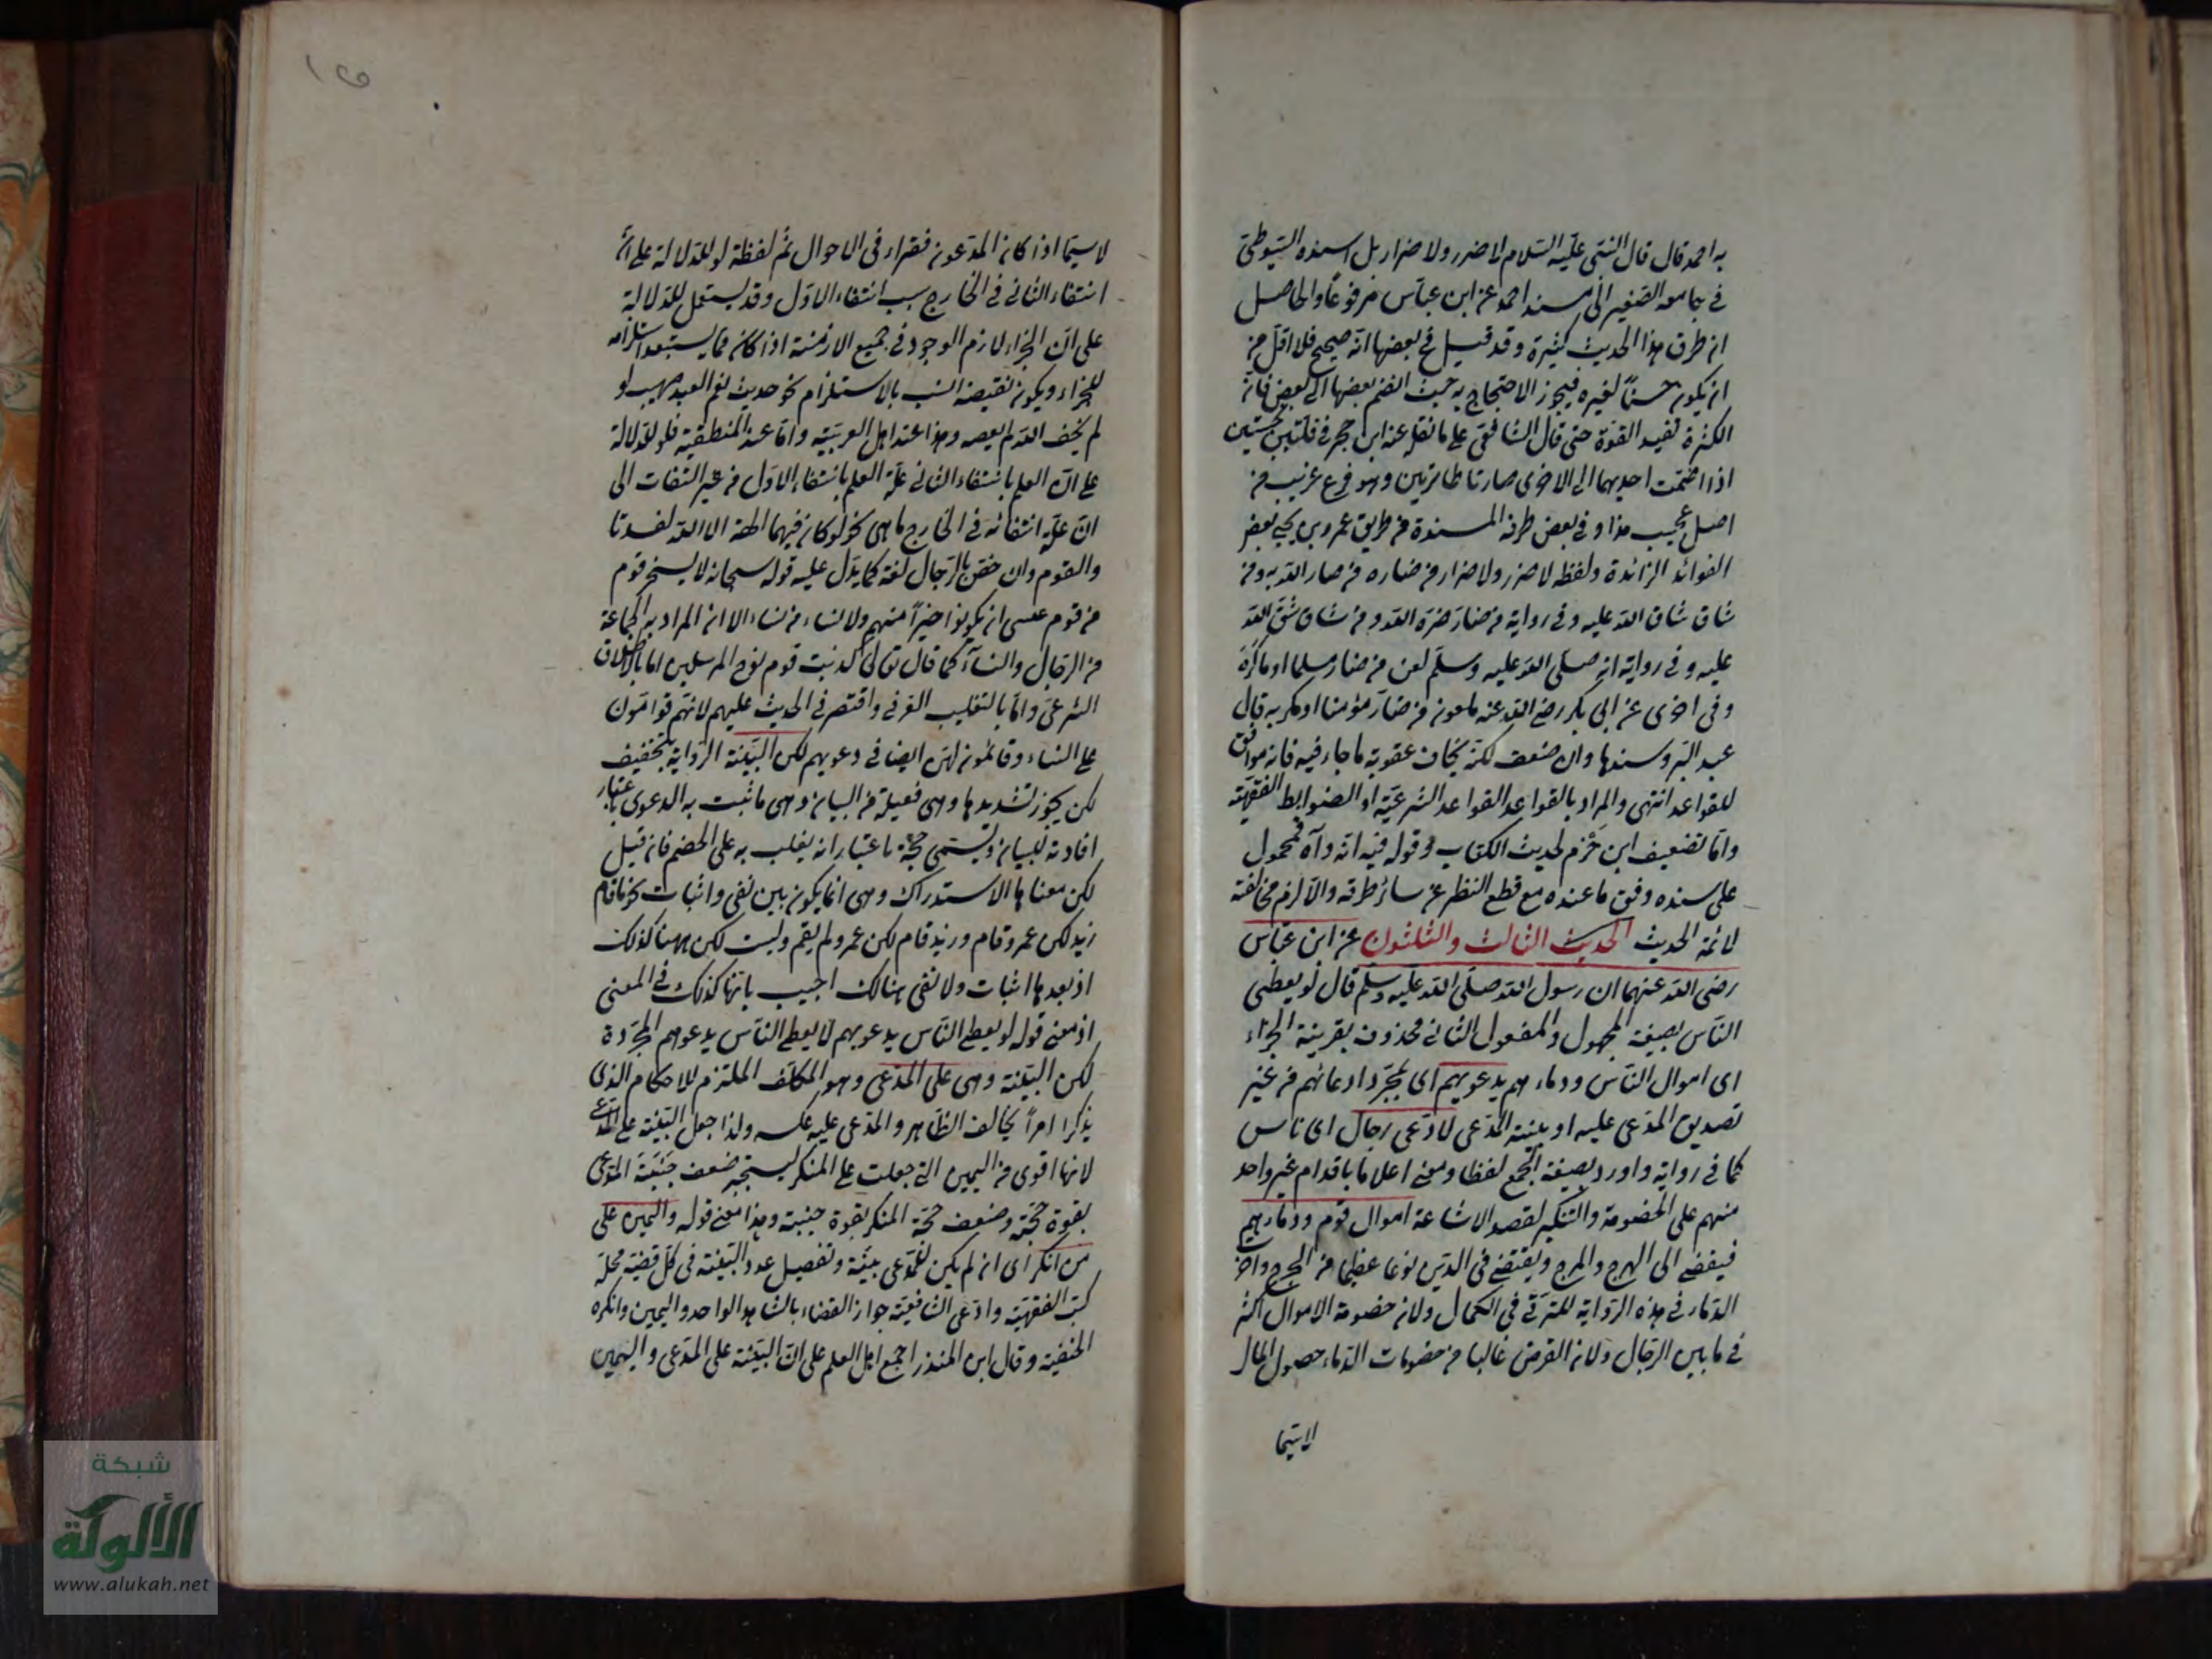 به احمد قال قال النبى عليه السلام لا ضرر ولا ضرار بل اسنده السيوطى
فى جامعه الصغير الى مسند احمد عن ابن عباس مرفوعا والحاصل
ان طرق هذا الحديث كثيرة وقد قيل فى بعضها انه صحيح فلا اقل من
ان يكون حسنا لغيره فيجوز الاحتجاج به حيث انضم بعضها الى بعض فان
الكثرة تفيد القوة حتى قال الشافعى على ما نقل عنه ابن حجر فى قلتين نجستين
اذا ضمت احديهما الى الاخرى صارتا طاهرتين وهو فرع غريب من
اصل عجيب هذا وفى بعض طرقه المسندة من طريق عمرو بن يحيى بعض
الفوائد الزائدة ولفظه لا ضرر ولا ضرار من ضاره ضاره الله به ومن
شاق شاق الله عليه وفى رواية من ضار ضره الله ومن شاق شق الله
عليه وفى رواية انه صلى الله عليه وسلم لعن من ضار مسلما او ماكره
وفى اخرى عن ابى بكر رضى الله عنه ملعون من ضار مؤمنا او مكر به قال
عبد البر وسندها وان ضعف لكنه يخاف عقوبة ما جاء فيه فانه موافق
للقواعد انتهى والمراد بالقواعد القواعد الشرعية او الضوابط الفقهية
واما تضعيف ابن حزم لحديث الكتاب وقوله فيه انه واه فمحمول
على سنده وفق ما عنده مع قطع النظر عن سائر طرقه والا لزم مخالفته
لائمة الحديث الحديث الثالث والثلثون عن ابن عباس
رضى الله عنهما ان رسول الله صلى الله عليه وسلم قال لو يعطى
الناس بصيغة المجهول والمفعول الثانى محذوف بقرينة الجزاء
اى اموال الناس ودماءهم بدعويهم اى بمجرد ادعائهم من غير
تصديق المدعى عليه او بينة المدعى لادعى رجال اى ناس
كما فى رواية واورد بصيغة الجمع لفظا ومعنى اعلاما باقدام غير واحد
منهم على الخصومة والتنكير لقصد الاشاعة اموال قوم ودماءهم
فيفضى الى الهرج والمرج ويقتضى فى الدين نوعا عظيما من الحرج واخر
الدماء فى هذه الرواية للترقى فى الكمال ولان خصومة الاموال اكثر
فى ما بين الرجال ولان الغرض غالبا من خصومات الدماء حصول المال
لا سيما
لا سيما اذا كان المدعون فقراء فى الاحوال ثم لفظة لو للدلالة على ان
انتفاء الثانى فى الخارج بسبب انتفاء الاول وقد يستعمل للدلالة
على ان الجزاء لازم الوجود فى جميع الازمنة اذا كان مما يستبعد استلزامه
للجزاء ويكون نقيضه انسب بالاستلزام نحو حديث نعم العبد صهيب لو
لم يخف الله لم يعصه وهذا عند اهل العربية واما عند المنطقية فلو للدلالة
على ان العلم بانتفاء الثانى علة العلم بانتفاء الاول من غير التفات الى
ان علة انتفائه فى الخارج ما هى نحو لو كان فيهما الهة الا الله لفسدتا
والقوم وان خص بالرجال لغة كما يدل عليه قوله سبحانه لا يسخر قوم
من قوم عسى ان يكونوا خيرا منهم ولا نساء من نساء الا ان المراد به الجماعة
من الرجال والنساء كما قال تعالى كذبت قوم نوح المرسلين اما بالاطلاق
الشرعى واما بالتغليب العرفى واقتصر فى الحديث عليهم لانهم قوامون
على النساء وقائمون لهن ايضا فى دعويهم لكن البينة الرواية بتخفيف
لكن يجوز تشديدها وهى فعيلة من البيان وهى ما ثبت به الدعوى باعتبار
افادته للبيان ويسمى حجة باعتبار انه يغلب به على الخصم فان قيل
لكن معناها الاستدراك وهى انما يكون بين نفى واثبات نحو ما قام
زيد لكن عمرو قام وزيد قام لكن عمرو لم يقم وليست لكن ههنا كذلك
اذ بعدها اثبات ولا نفى هنالك اجيب بانها كذلك فى المعنى
اذ معنى قوله لو يعطى الناس بدعويهم لا يعطى الناس بدعويهم المجردة
لكن البينة وهى على المدعى وهو المكلف الملتزم للاحكام الذى
يذكر امرا يخالف الظاهر والمدعى عليه عكسه ولذا جعل البينة على المدعى
لانها اقوى من اليمين التى جعلت على المنكر ليستجبر ضعف جنبة المدعى
بقوة حجته وضعف حجة المنكر بقوة جنبته وهذا معنى قوله واليمين على
من انكر اى ان لم يكن للمدعى بينة وتفصيل عدد البينة فى كل قضية محله
كتب الفقهية وادعى الشافعية جواز القضاء بالشاهد الواحد واليمين وانكره
الحنفية وقال ابن المنذر اجمع اهل العلم على ان البينة على المدعى واليمين
شبكة
الألوكة
www.alukah.net